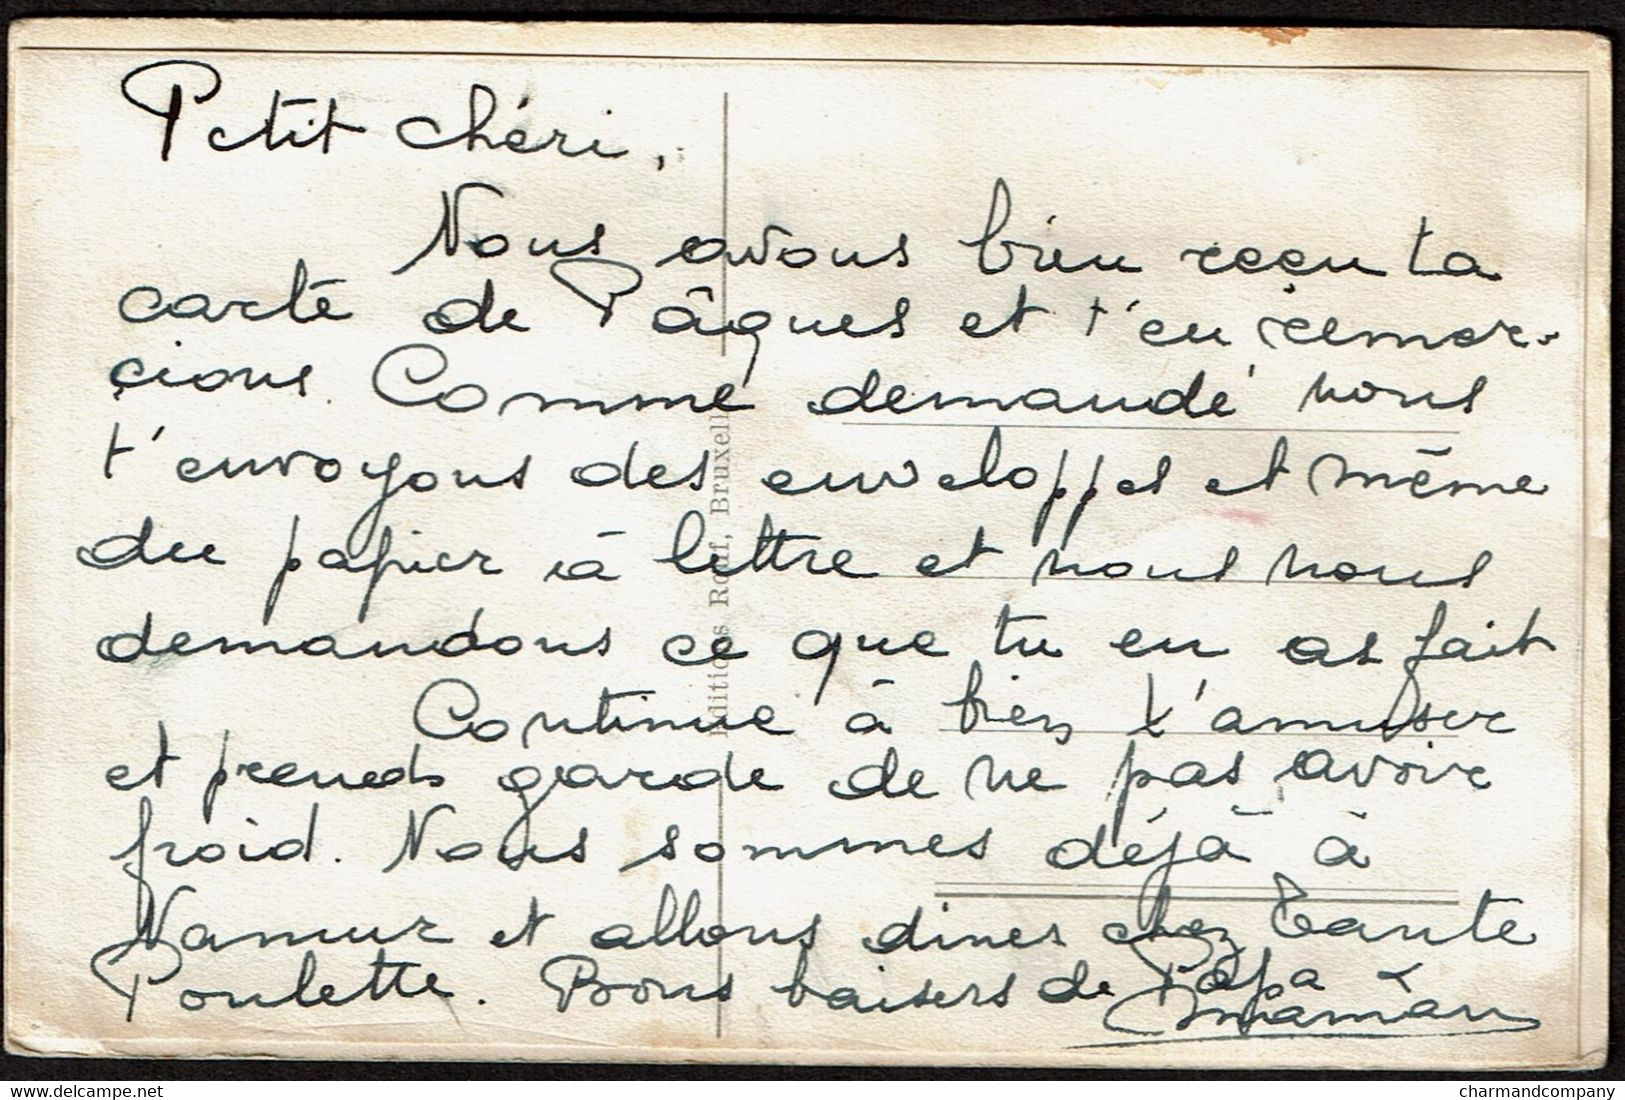 Petit chéri,
Nous avons bien reçu ta
carte de Pâques et t'en remer-
çions. Comme demandé nous
t'envoyons des enveloppes et même
du papier à lettre et nous nous
demandons ce que tu en as fait
Continue à bien t'amuser
et prends garde de ne pas avoir
froid. Nous sommes déjà à
Namur et allons diner chez Tante
Poulette. Bons baisers de Papa &
maman
Bruxell
charmandcompany